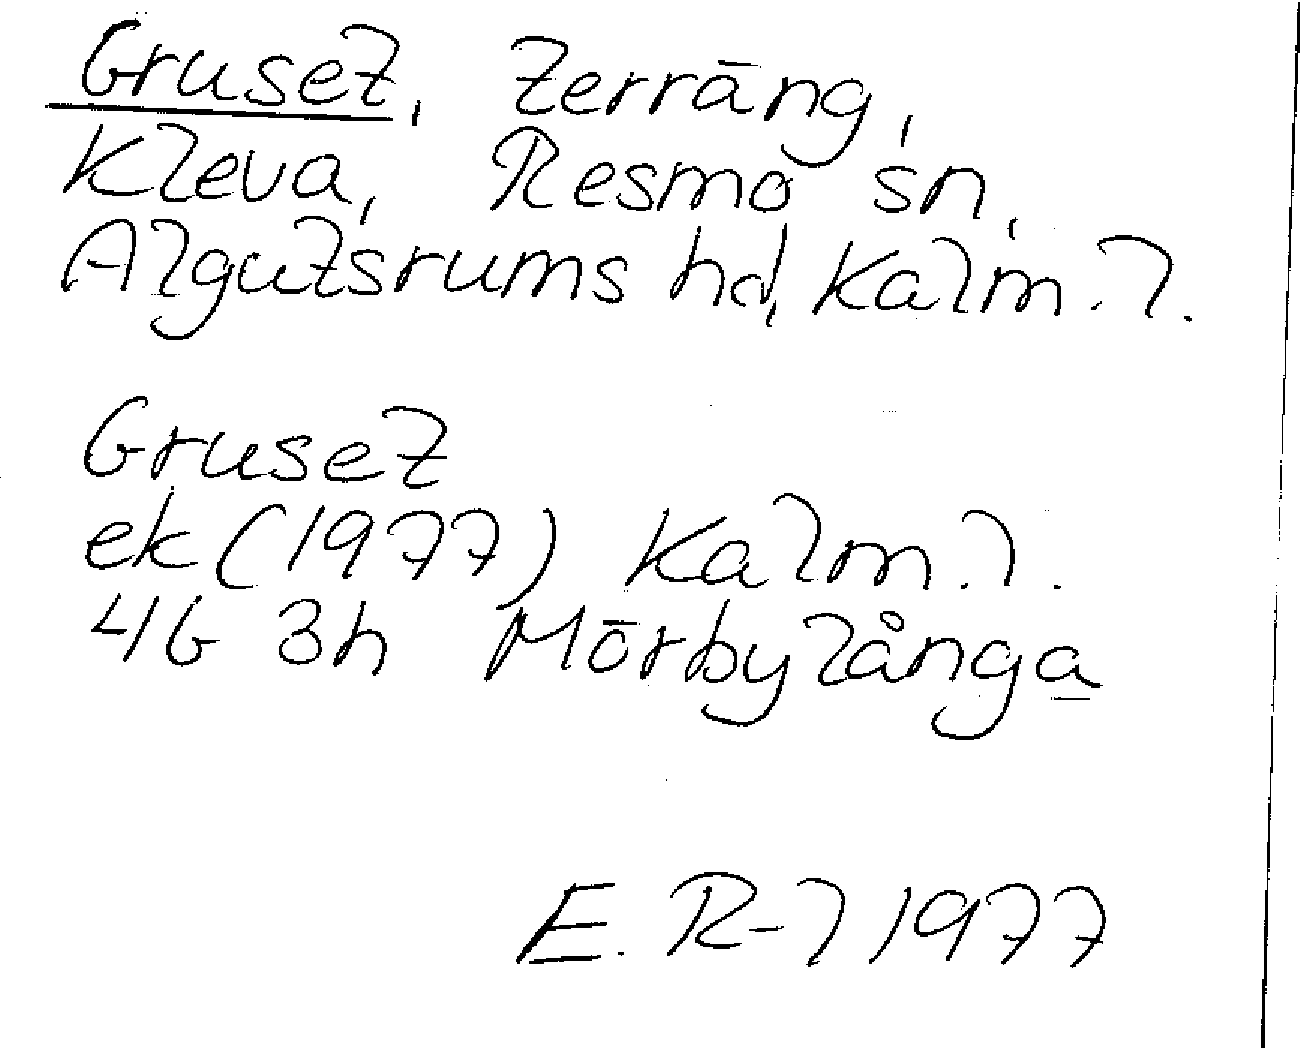 Gruset, terräng,
Kleva, Resmo sn,
Algutsrums hd, Kalm. l.
Gruset
ek (1977) Kalm. l.
4G 3h Mörbylånga
E. R-l 1977